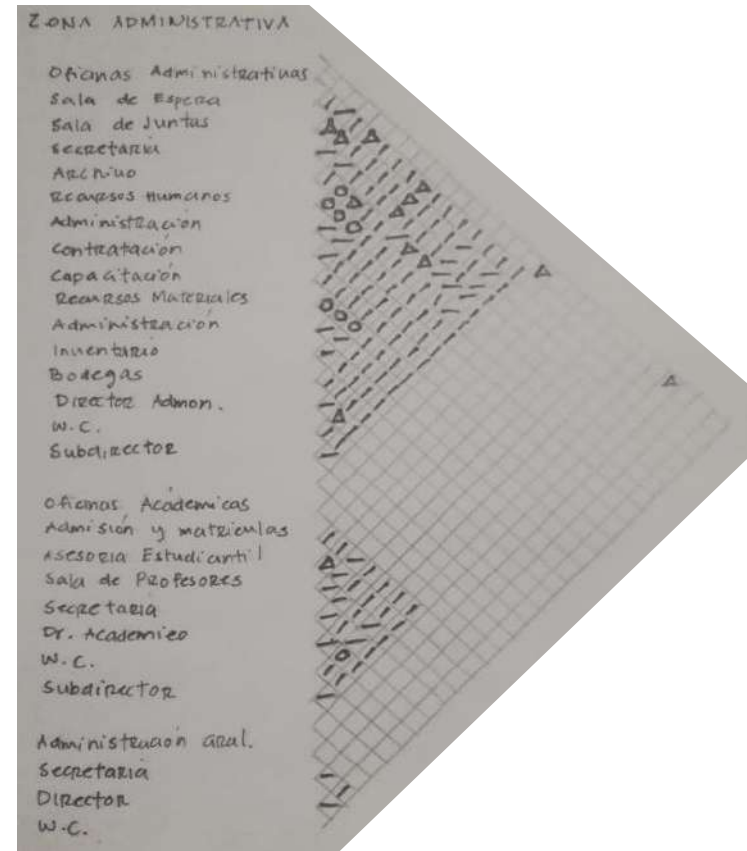 ZONA ADMINISTRATIVA
Oficinas Administrativas
Sala de Espera
Sala de Juntas
Secretaria
Archivo
Recursos Humanos
Administración
Contratación
Capacitación
Recursos Materiales
Administración
Inventario
Bodegas
Director Admon.
W.C.
Subdirector
Oficinas Académicas
Admisión y matriculas
Asesoria Estudiantil
Sala de Profesores
Secretaria
Dr. Academico
W.C.
Subdirector
Administración gral.
Secretaria
Director
W.C.